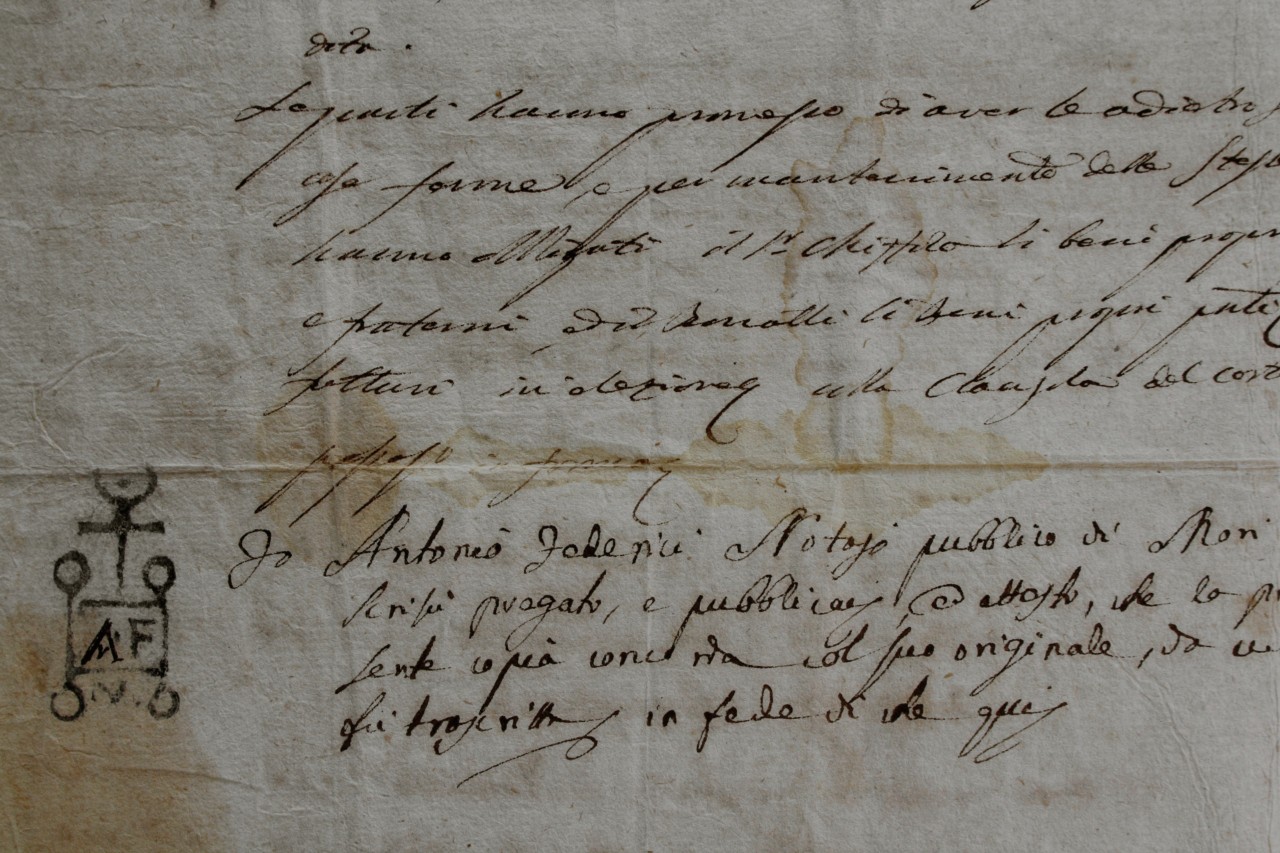 dita.
Le parti hanno promesso di aver le adietro
cose ferme, e per mantenimento delle Stesse
hanno il Sr. li beni propri
e fraterni, ed il li beni propri
futturi in elezione alla Clausola del
in forma
Io Antonio Federici Notajo pubblico di Mori
scrissi pregato, e pubblicai, ed attesto, che la pre
sente copia concorda col suo originale, da cui
fu trascritta, in fede di che qui
AF
N.